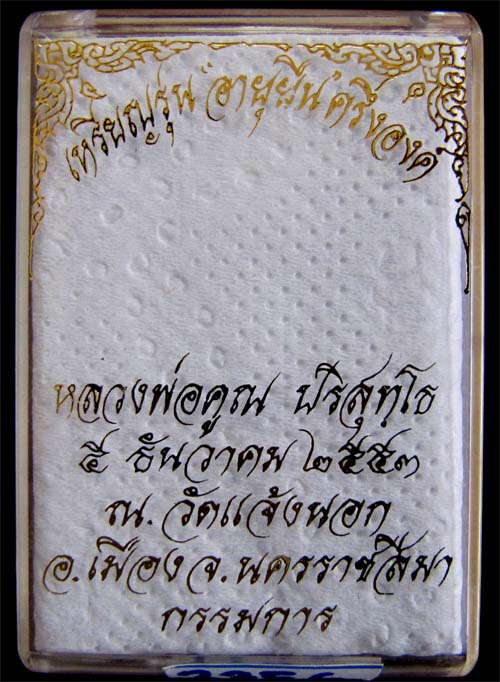 เหรียญรุ่น "อายุยืน" ครึ่งองค์
หลวงพ่อคูณ ปริสุทฺโธ
๕ ธันวาคม ๒๕๕๓
ณ. วัดแจ้งนอก
อ.เมือง จ.นครราชสีมา
กรรมการ